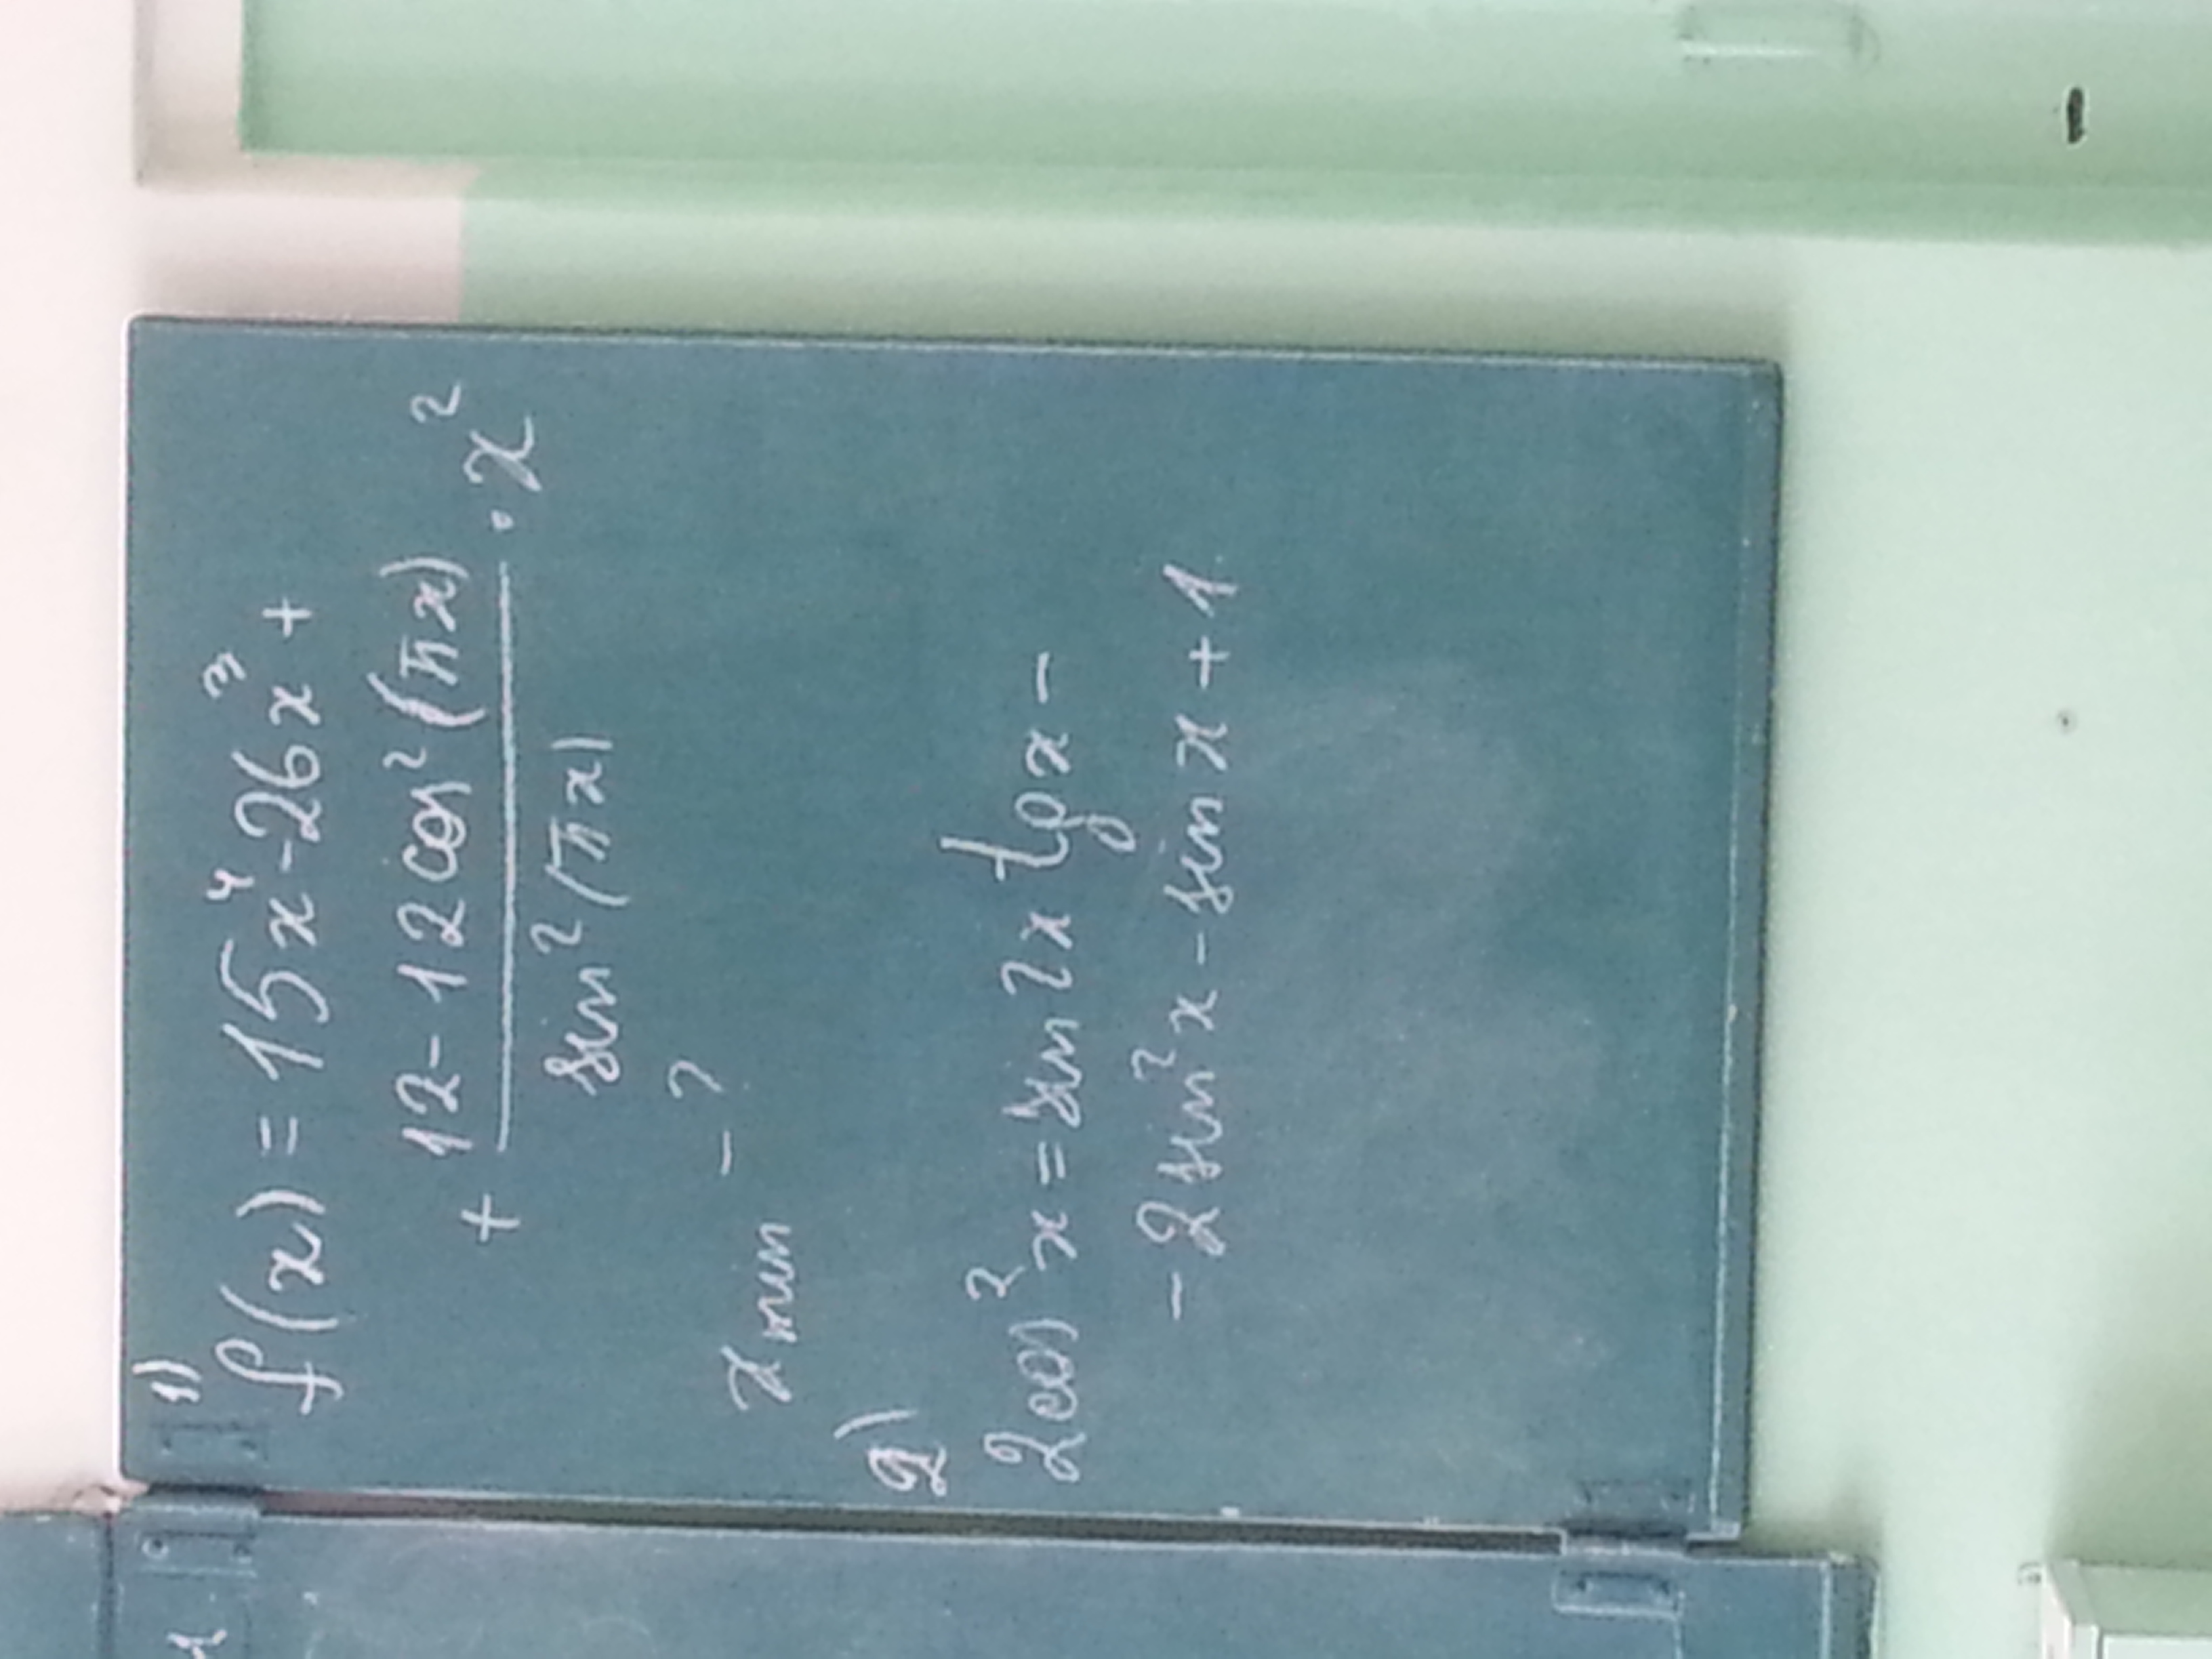 1)
f(x) = 15x⁴ - 26x³ +
+ (12 - 12 cos²(πx)) / (sin²(πx)) · x²
x min - ?
2)
2cos²x = sin 2x tg x -
- 2 sin²x - sin x + 1